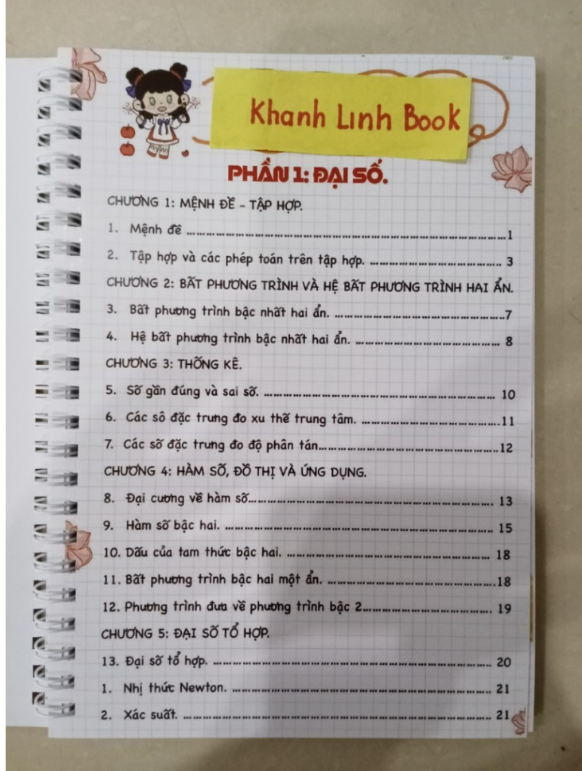 Khanh Linh Book
PHẦN 1: ĐẠI SỐ.
CHƯƠNG 1: MỆNH ĐỀ – TẬP HỢP.
1. Mệnh đề ........................................................ 1
2. Tập hợp và các phép toán trên tập hợp. ........................ 3
CHƯƠNG 2: BẤT PHƯƠNG TRÌNH VÀ HỆ BẤT PHƯƠNG TRÌNH HAI ẨN.
3. Bất phương trình bậc nhất hai ẩn. ............................. 7
4. Hệ bất phương trình bậc nhất hai ẩn. .......................... 8
CHƯƠNG 3: THỐNG KÊ.
5. Số gần đúng và sai số. ........................................ 10
6. Các số đặc trưng đo xu thế trung tâm. ......................... 11
7. Các số đặc trưng đo độ phân tán................................ 12
CHƯƠNG 4: HÀM SỐ, ĐỒ THỊ VÀ ỨNG DỤNG.
8. Đại cương về hàm số............................................ 13
9. Hàm số bậc hai. ............................................... 15
10. Dấu của tam thức bậc hai. .................................... 18
11. Bất phương trình bậc hai một ẩn. ............................. 18
12. Phương trình đưa về phương trình bậc 2........................ 19
CHƯƠNG 5: ĐẠI SỐ TỔ HỢP.
13. Đại số tổ hợp. ............................................... 20
1. Nhị thức Newton. .............................................. 21
2. Xác suất. ..................................................... 21